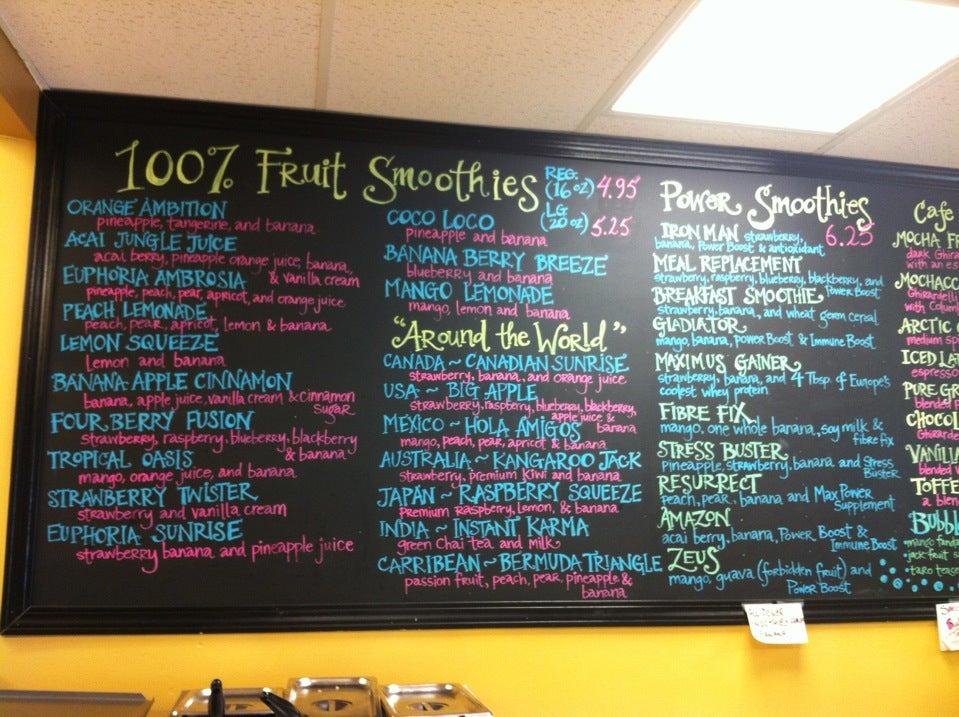 100% Fruit Smoothies
REG. (16 oz) 4.95
LG (20 oz) 5.25
ORANGE AMBITION
pineapple, tangerine, and banana
ACAI JUNGLE JUICE
acai berry, pineapple orange juice, banana,
& vanilla cream
EUPHORIA AMBROSIA
pineapple, peach, pear, apricot, and orange juice
PEACH LEMONADE
peach, pear, apricot, lemon & banana
LEMON SQUEEZE
lemon and banana
BANANA APPLE CINNAMON
banana, apple juice, vanilla cream & cinnamon
sugar
FOUR BERRY FUSION
strawberry, raspberry, blueberry, blackberry
& banana
TROPICAL OASIS
mango, orange juice, and banana
STRAWBERRY TWISTER
strawberry and vanilla cream
EUPHORIA SUNRISE
strawberry banana and pineapple juice
COCO LOCO
pineapple and banana
BANANA BERRY BREEZE
blueberry and banana
MANGO LEMONADE
mango, lemon and banana
"Around the World"
CANADA ~ CANADIAN SUNRISE
strawberry, banana, and orange juice
USA ~ BIG APPLE
strawberry, raspberry, blueberry, blackberry,
apple juice &
banana
MEXICO ~ HOLA AMIGOS
mango, peach, pear, apricot & banana
AUSTRALIA ~ KANGAROO JACK
strawberry, premium Kiwi and banana
JAPAN ~ RASPBERRY SQUEEZE
Premium Raspberry, lemon, & banana
INDIA ~ INSTANT KARMA
green Chai tea and milk
CARRIBEAN ~ BERMUDA TRIANGLE
passion fruit, peach, pear, pineapple &
banana
Power Smoothies
6.25
IRON MAN strawberry,
banana, Power Boost & antioxidant
MEAL REPLACEMENT
strawberry, raspberry, blueberry, blackberry, and
Power Boost
BREAKFAST SMOOTHIE
strawberry, banana, and wheat germ cereal
GLADIATOR
mango, banana, Power Boost & Immune Boost
MAXIMUS GAINER
strawberry, banana, and 4 Tbsp of Europe's
coolest whey protein
FIBRE FIX
mango, one whole banana, soy milk &
fibre fix
STRESS BUSTER
pineapple, strawberry, banana and Stress
Buster
RESURRECT
peach, pear, banana and Max Power
Supplement
AMAZON
acai berry, banana, Power Boost &
Immune Boost
ZEUS
mango, guava (forbidden fruit) and
Power Boost
Cafe
MOCHA FR
dark Ghira
with an es
MOCHACC
Ghirardelli
with Colum
ARCTIC
medium sp
ICED LA
espresso
PURE GR
blended
CHOCOL
Ghirarde
VANILLA
blended
TOFFE
a blen
Bubbl
mango tanda
jack-fruit s
taro tease